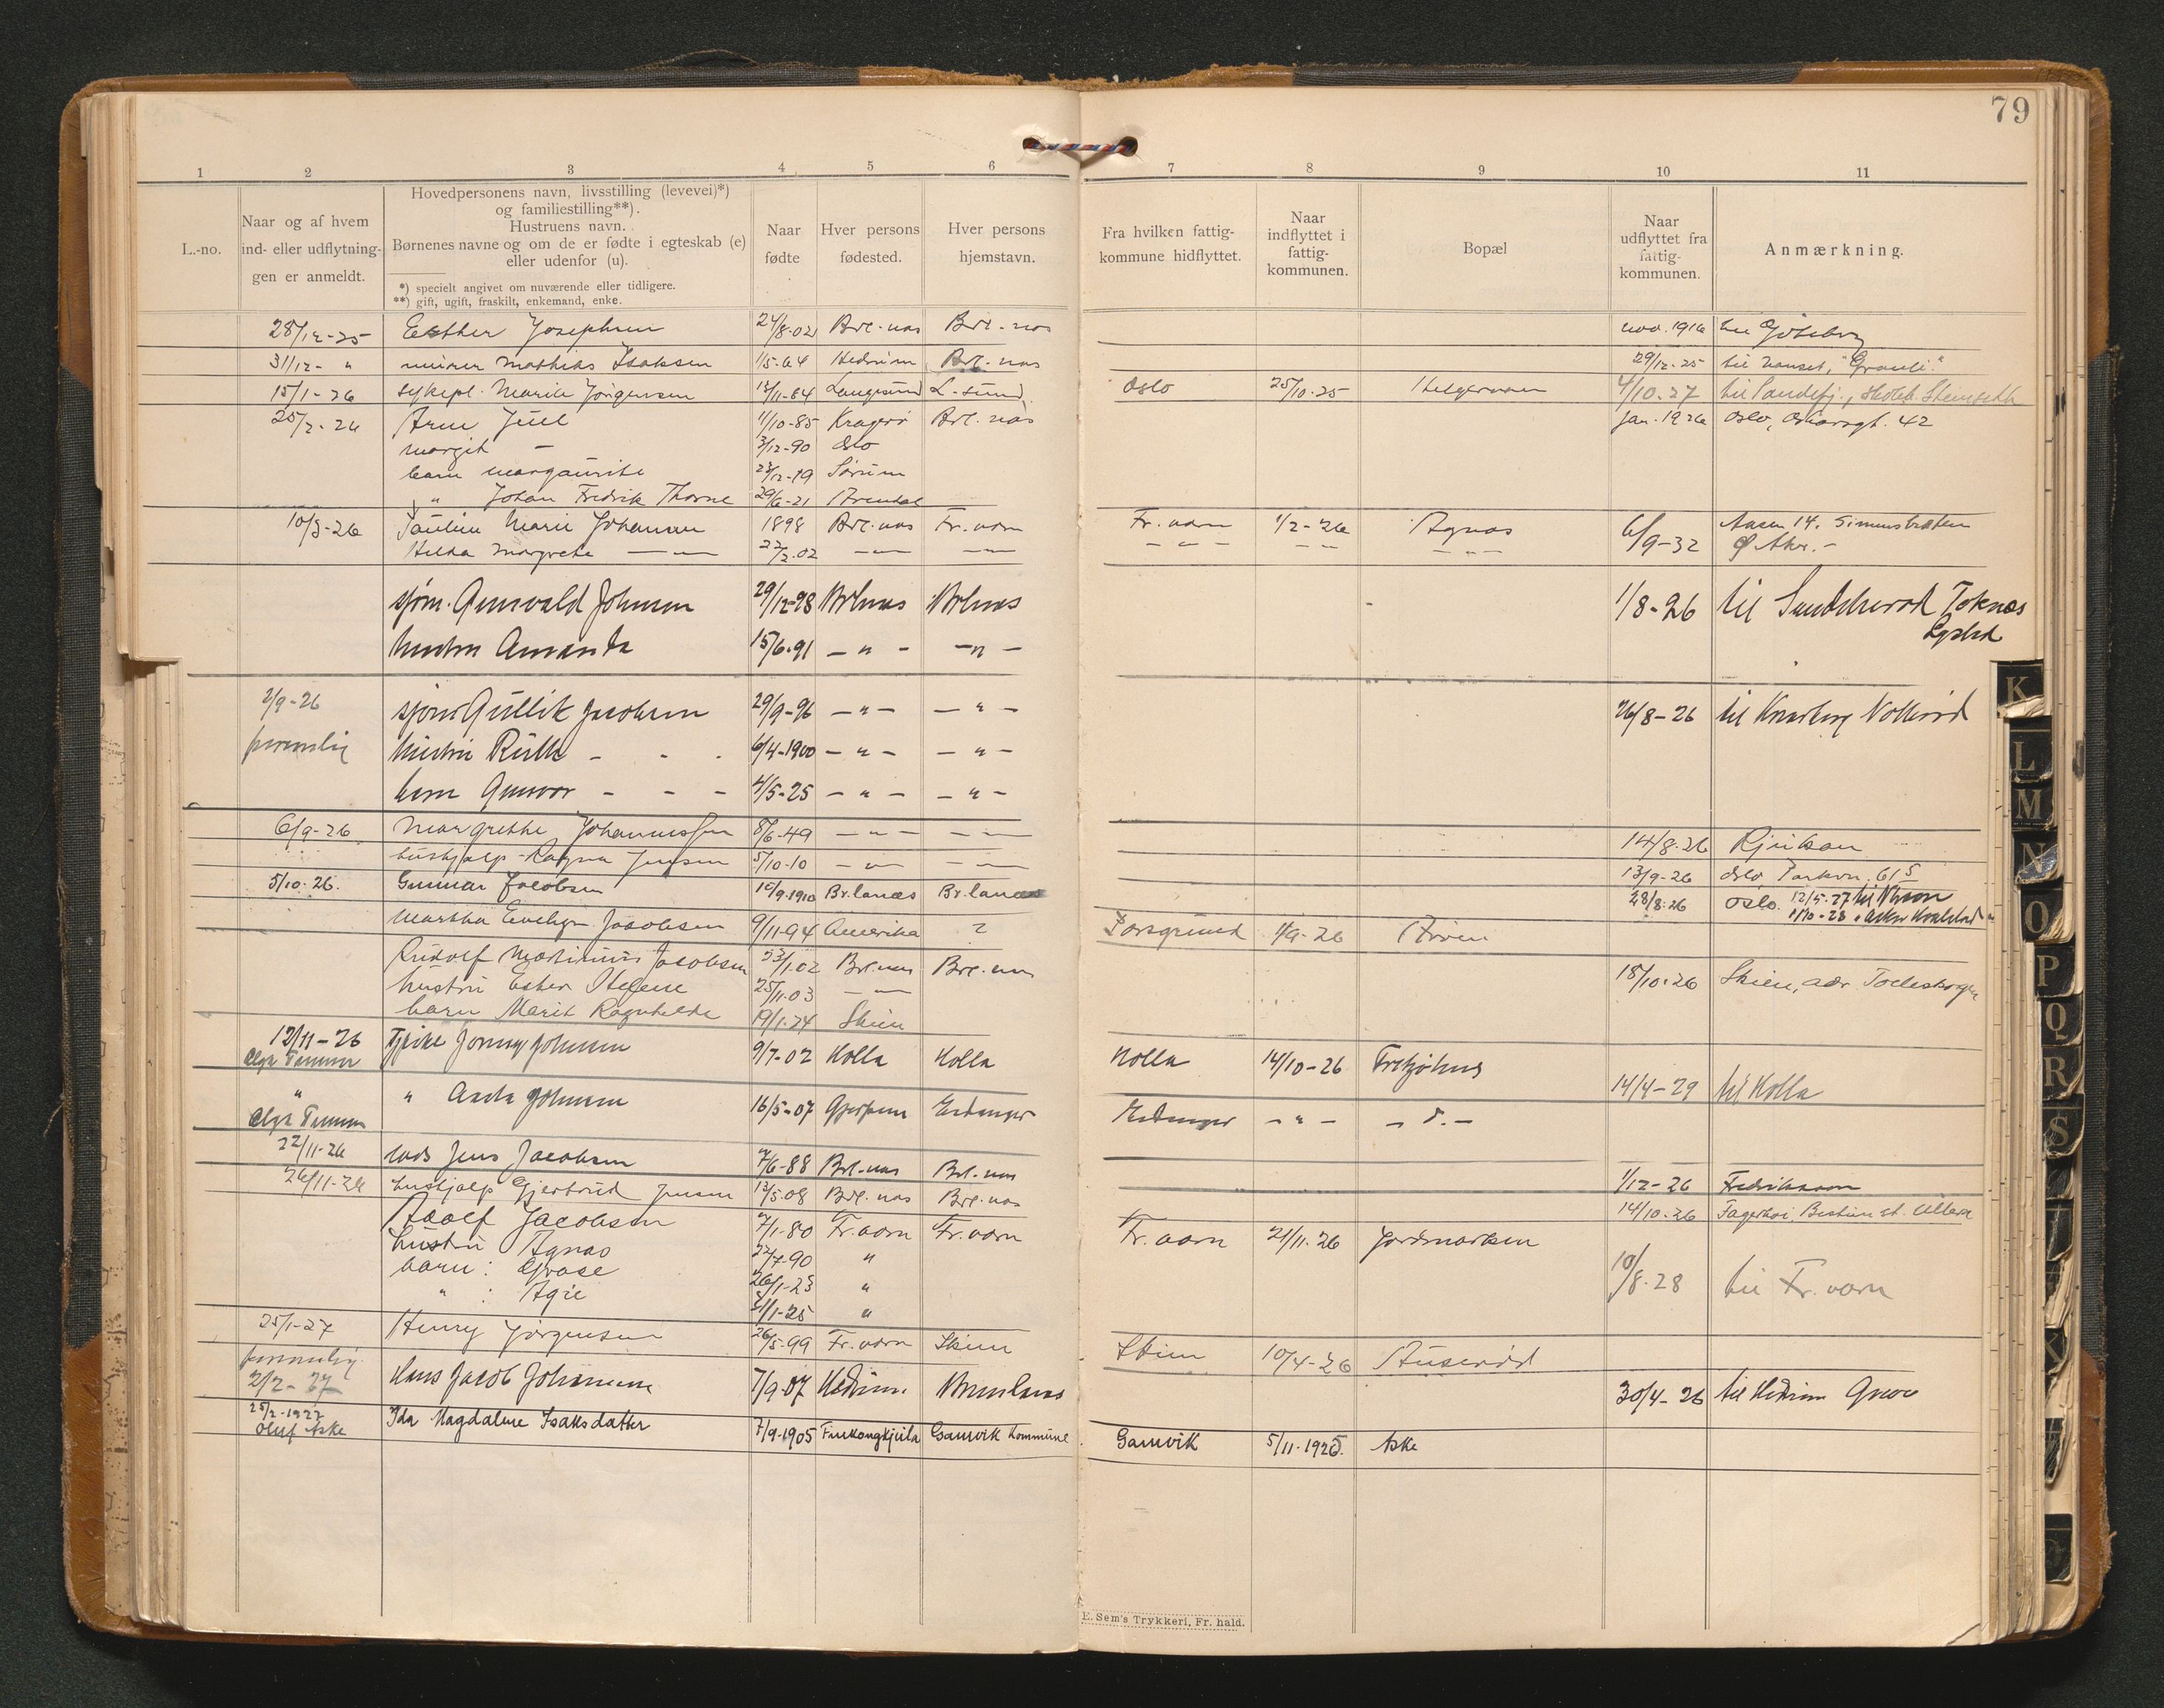 79
1 2 3 4 5 6 7 8 9 10 11
L.-no.
Naar og af hvem
ind- eller udflytning-
gen er anmeldt.
Hovedpersonens navn, livsstilling (levevei)*)
og familiestilling**).
Hustruens navn.
Børnenes navne og om de er fødte i egteskab (e)
eller udenfor (u).
*) specielt angivet om nuværende eller tidligere.
**) gift, ugift, fraskilt, enkemand, enke.
Naar
fødte
Hver persons
fødested.
Hver persons
hjemstavn.
Fra hvilken fattig-
kommune hidflyttet.
Naar
indflyttet i
fattig-
kommunen.
Bopæl
Naar
udflyttet fra
fattig-
kommunen.
Anmærkning.
28/12-25 Esther Josephsen 24/8-02 Brl.nas Brl.nas nov. 1916 til Göteborg
31/12- " murer Mathias Isaksen 1/5-64 Hedrum Brl.nas 29/12-25 til Nanset, "Granli"
15/1-26 sykepl. Marie Jörgensen 15/11-84 Langesund L-sund Oslo 25/10-25 Helgeroaen 4/10-27 til Sandefj., Hotel
25/2-26 Arne Juel 1/10-85 Kragerö Brl.nas Jan. 1926 Oslo, Oskarsgt. 42
Margit — 3/12-90 Oslo
barn Margaurite 23/12-19 Sörum
" Johan Fredrik Thorne 29/6-21 Arendal
10/3-26 Pauline Marie Johansen 1898 Brl.nas Fr.værn Fr.værn 1/2-26 Agnas 6/9-32 Aasen 14, Simensbraten
Hilda Margrete — " — 22/2-02 — " — — " — — " — — " — — " — Ø. Aker.-
sjøm. Gunvald Johnsen 29/12-98 Brlnas Brlnas 1/8-26 til Sandeherred Toknæs
hustru Amanda 15/6-91 — " — — " —
2/9-26 sjøm Gullik Jacobsen 29/9-96 — " — — " — 26/8-26 til Kongsberg
personlig hustru Ruth - - - 6/4-1900 — " — — " —
barn Gunvor - - - 4/5-25 — " — — " —
6/9-26 Margrethe Johannessen 8/6-49 — " — — " — 14/8-26 Rjukan
hushjælp Ragna Jensen 5/10-10 — " — — " — 13/9-26 Oslo Parkvn. 61 5
5/10-26. Gunnar Jacobsen 10/9-1910 Br.lanæs Br.lanæs 28/8-26 Oslo. 12/5-27 til
Martha Evelyn Jacobsen 9/11-94 Amerika ? Porsgrund 1/9-26
Rudolf Martinius Jacobsen 23/1-02 Brl.nas Brl.nas 18/10-26 Skien, adr.
hustru Ester Helene 25/11-03 — " —
barn Marit Ragnhilde 19/1-24 Skien
12/11-26 Johnsen 9/7-02 Holla Holla Holla 14/10-26 14/4-29 til Holla
" " Johnsen 16/5-07 Gjerpen Eidanger Eidanger — " — — " —
22/11-26 lods Jens Jacobsen 7/6-88 Brl.nas Brl.nas 1/12-26 Fredriksværn
26/11-26 hushjælp Gjertrud Jensen 13/5-08 Brl.nas Brl.nas 14/10-26
Adolf Jacobsen 7/1-80 Fr.værn Fr.værn Fr.værn 21/11-26 Jordmarken 10/8-28 til Fr.værn
hustru Agnas 22/7-90 "
barn: 26/1-23 "
" : Agie 31/1-25 "
25/1-27 Henry Jörgensen 26/5-99 Fr.værn Skien Skien 10/4-26 Auseröd
personlig
2/2-27 Hans Jacob Johannsen 7/9-07 Hedrum. Brunlanes 30/4-26 til Hedrum
25/2-1927 Oluf Aske Ida Magdalene Isaksdatter 7/9-1905 Finkongkjeila Gamvik Kommune Gamvik 5/11-1925. Aske
E. Sem's Trykkeri, Fr. hald.
K
L
M
N
O
P
Q
R
S